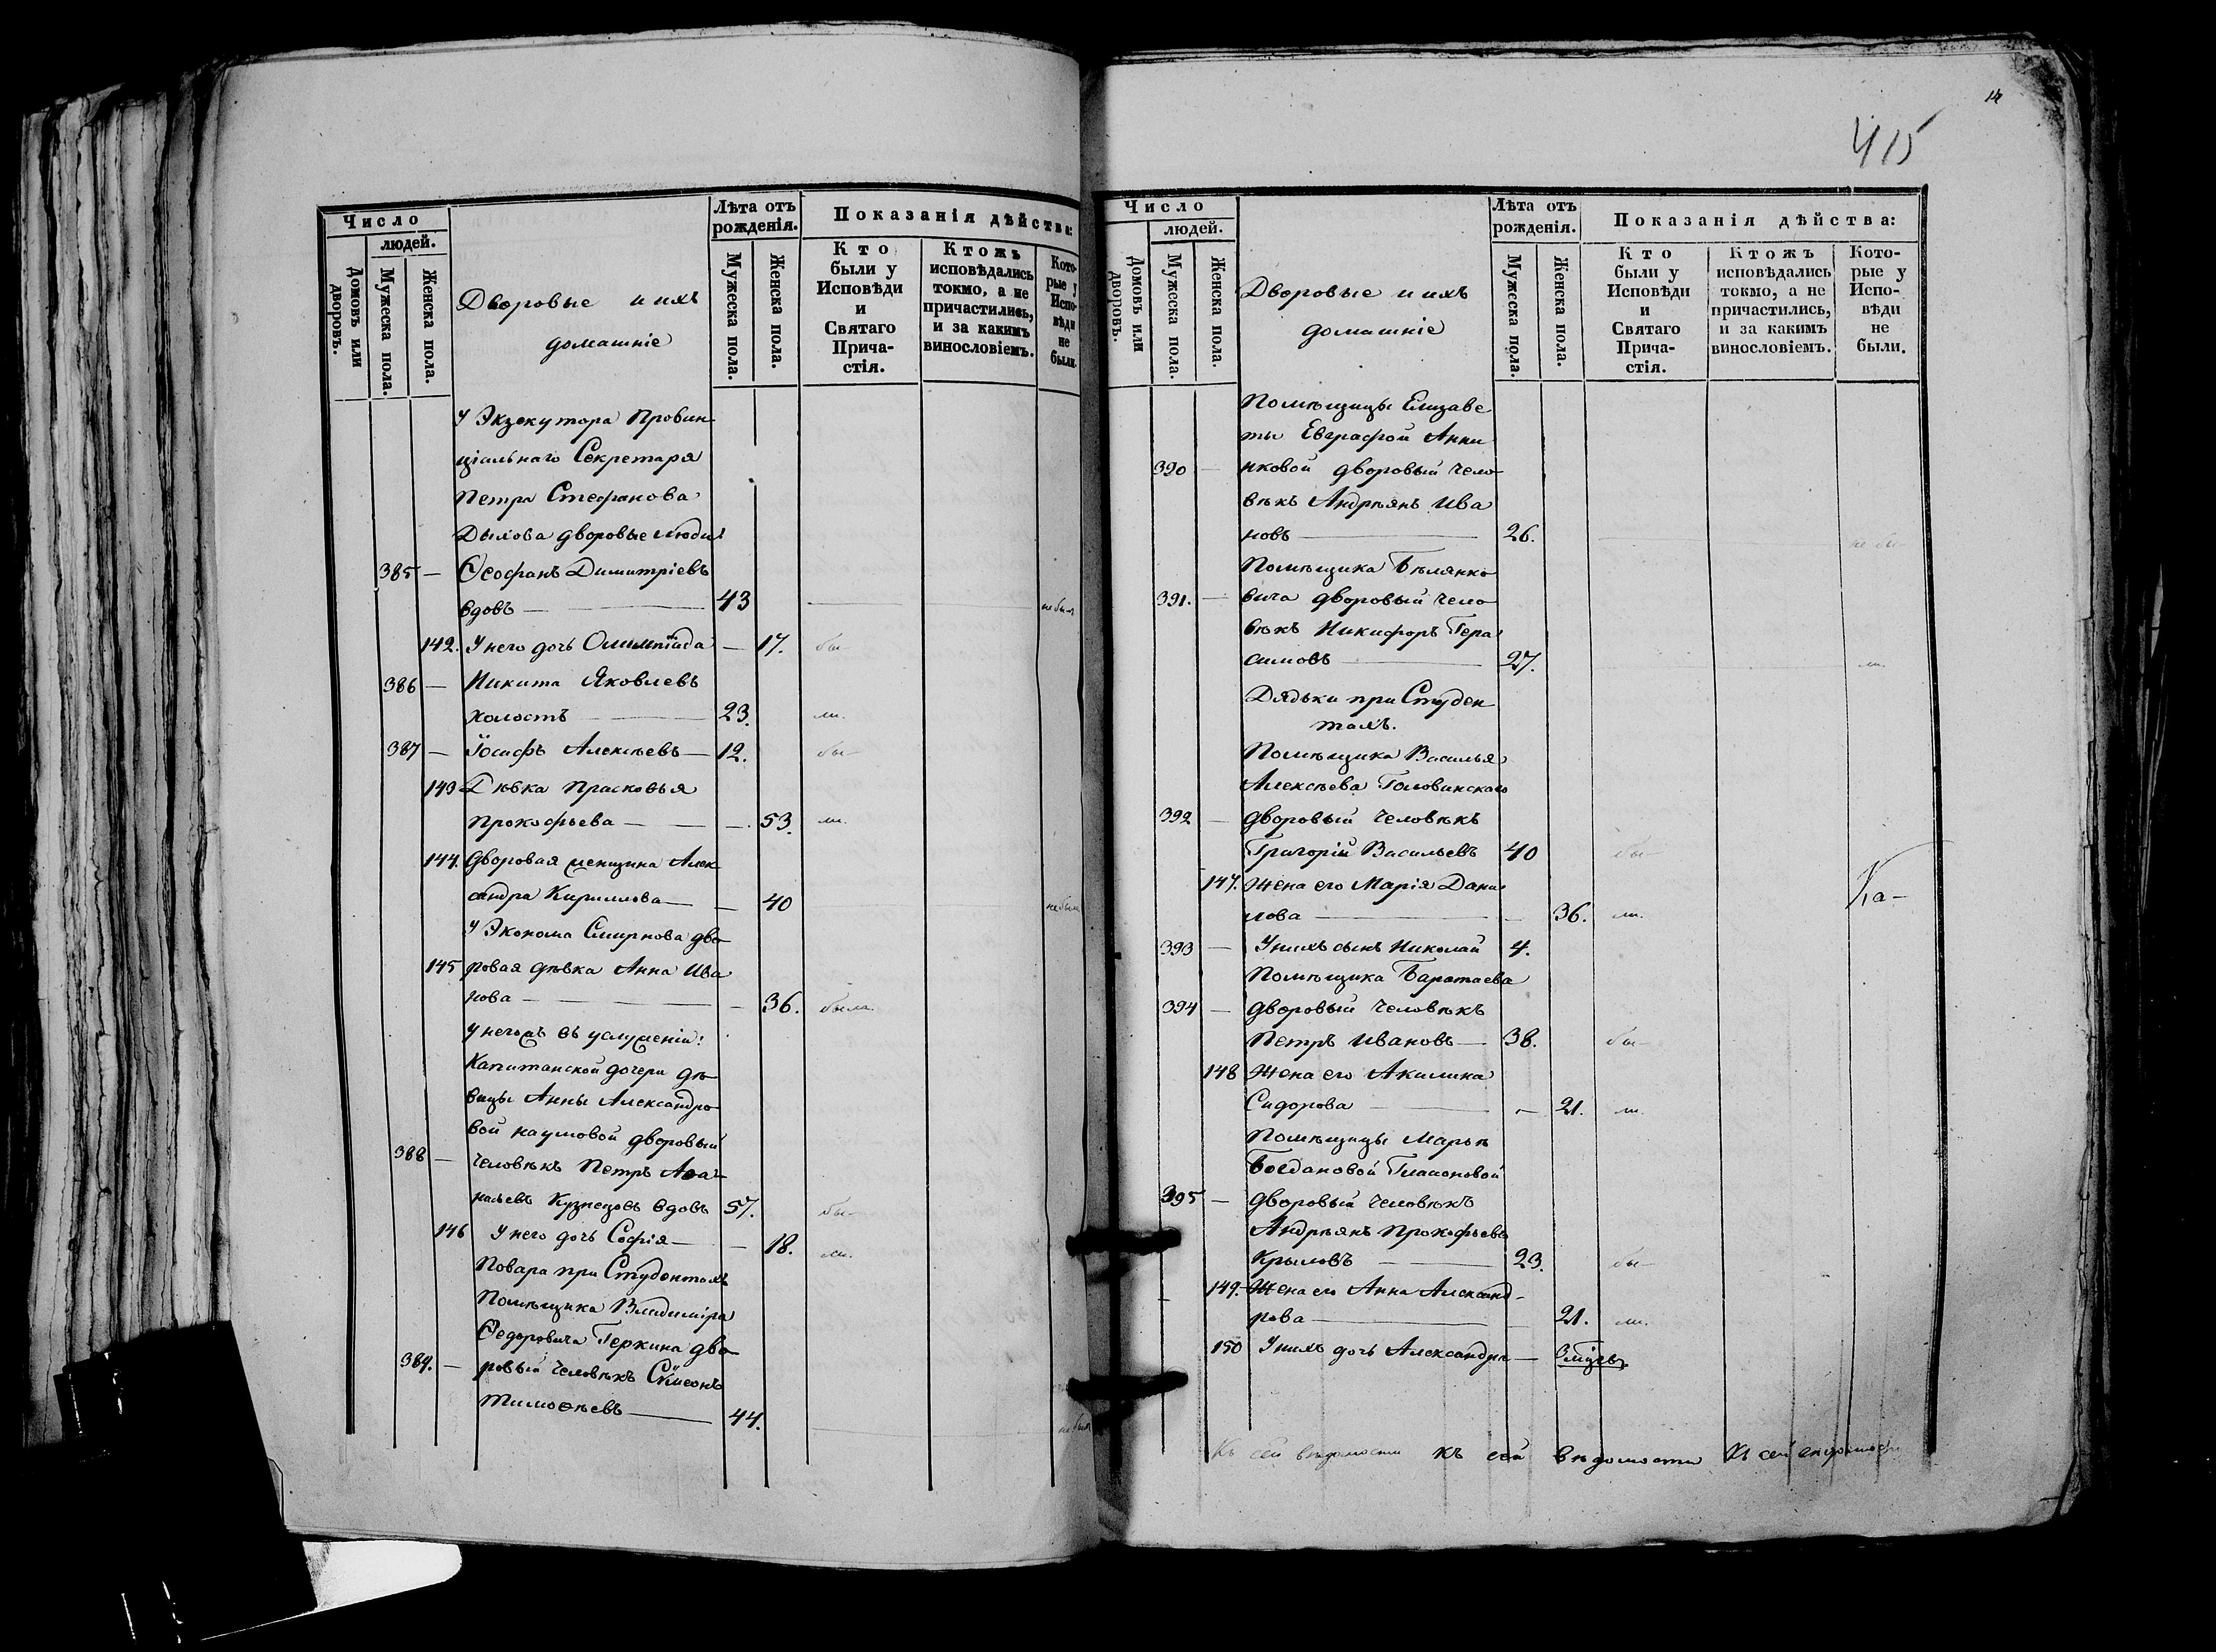 Число
людей.
Домовъ или дворовъ.
Мужеска пола.
Женска пола.
Дворовые и ихъ
домашніе
Лѣта отъ
рожденія.
Мужеска пола.
Женска пола.
Показанія дѣйства:
Кто
были у
Исповѣди
и
Святаго
Прича-
стія.
Ктожъ
исповѣдались
токмо, а не
причастились,
и за какимъ
винословіемъ.
Кото-
рые у
Испо-
вѣди
не
были.
У Экзекутора Провин
ціальнаго Секретаря
Петра Стефанова
Дылова дворовые люди
385 — Ѳеофанъ Димитріевъ
вдовъ — 43 не былъ
142. У него дочь Олимпіада — 17. бы—
386 — Никита Яковлевъ
холостъ — 23. ли.
387 — Іосифъ Алексѣевъ — 12. бы—
143 Дѣвка Прасковья
Прокофьева — — 53. ли.
144. Дворовая женщина Алек
сандра Кириллова — — 40 не была
У Эконома Смирнова дво
145 ровая дѣвка Анна Ива
нова — — 36. была.
У негожъ въ услуженіи:
Капитанской дочери дѣ
вицы Анны Александро
вой Наумовой дворовый
388 — человѣкъ Петръ Аѳа
насьевъ Кузнецовъ вдовъ 57. бы—
146 У него дочь Софія — — 18. ли.
Повара при Студентахъ
Помѣщика Владиміра
Ѳедоровича Геркина дво
389. — ровый человѣкъ Сѵмеонъ
Тимоѳѣевъ — 44. не былъ
14
415
Число
людей.
Домовъ или дворовъ.
Мужеска пола.
Женска пола.
Дворовые и ихъ
домашніе
Лѣта отъ
рожденія.
Мужеска пола.
Женска пола.
Показанія дѣйства:
Кто
были у
Исповѣди
и
Святаго
Прича-
стія.
Ктожъ
исповѣдались
токмо, а не
причастились,
и за какимъ
винословіемъ.
Кото-
рые у
Испо-
вѣди
не
были.
Помѣщицы Елизаве
ты Евграфой Анни
390 — нковой дворовый чело
вѣкъ Андрѣянъ Ива
новъ — 26. не бы—
Помѣщика Бѣлянко
391. — вича дворовый чело
вѣкъ Никифоръ Гера
симовъ — 27. ли.
Дядьки при Студен
тахъ.
Помѣщика Василья
Алексѣева Головинскаго
392 — дворовый человѣкъ
Григорій Васильевъ 40 бы—
147. Жена его Марія Дани
лова — — 36. ли.
Ка-
393 — У нихъ сынъ Николай 4.
Помѣщика Баратаева
394 — дворовый человѣкъ
Петръ Ивановъ — 38. бы—
148 Жена его Акилина
Сидорова — — 21. ли.
Помѣщицы Марьи
Богдановой
395 — дворовый человѣкъ
Андрѣянъ Прокофьевъ
Крыловъ — 23. бы—
149. Жена его Анна Александ-
рова — 21. ли.
150 У нихъ дочь Александра —
Къ сей вѣдомости къ сей вѣдомости Къ сей вѣдомости